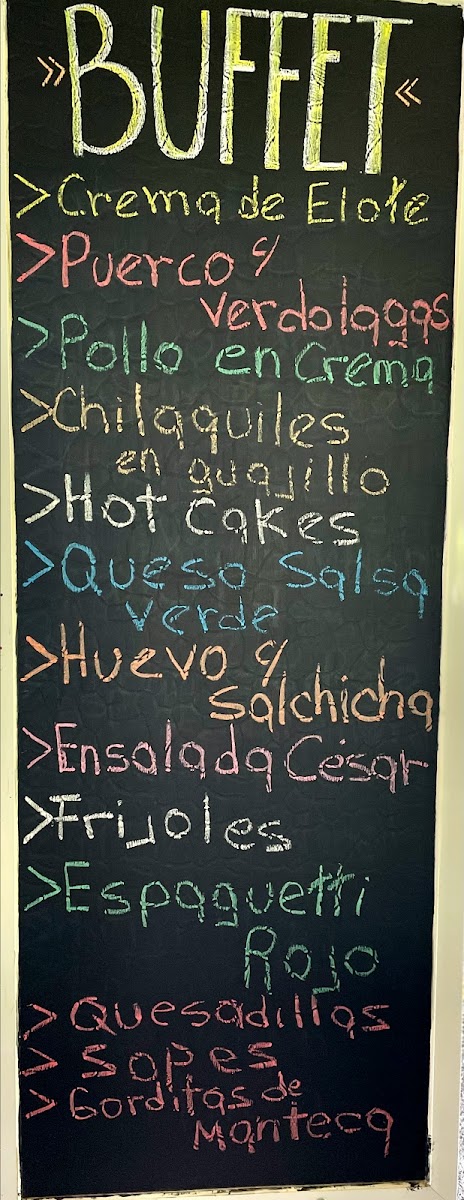 » BUFFET «
> Crema de Elote
> Puerco c/
verdolagas
> Pollo en Crema
> Chilaquiles
en guajillo
> Hot Cakes
> Queso Salsa
verde
> Huevo c/
salchicha
> Ensalada César
> Frijoles
> Espaguetti
Rojo
> Quesadillas
> Sopes
> Gorditas de
Manteca